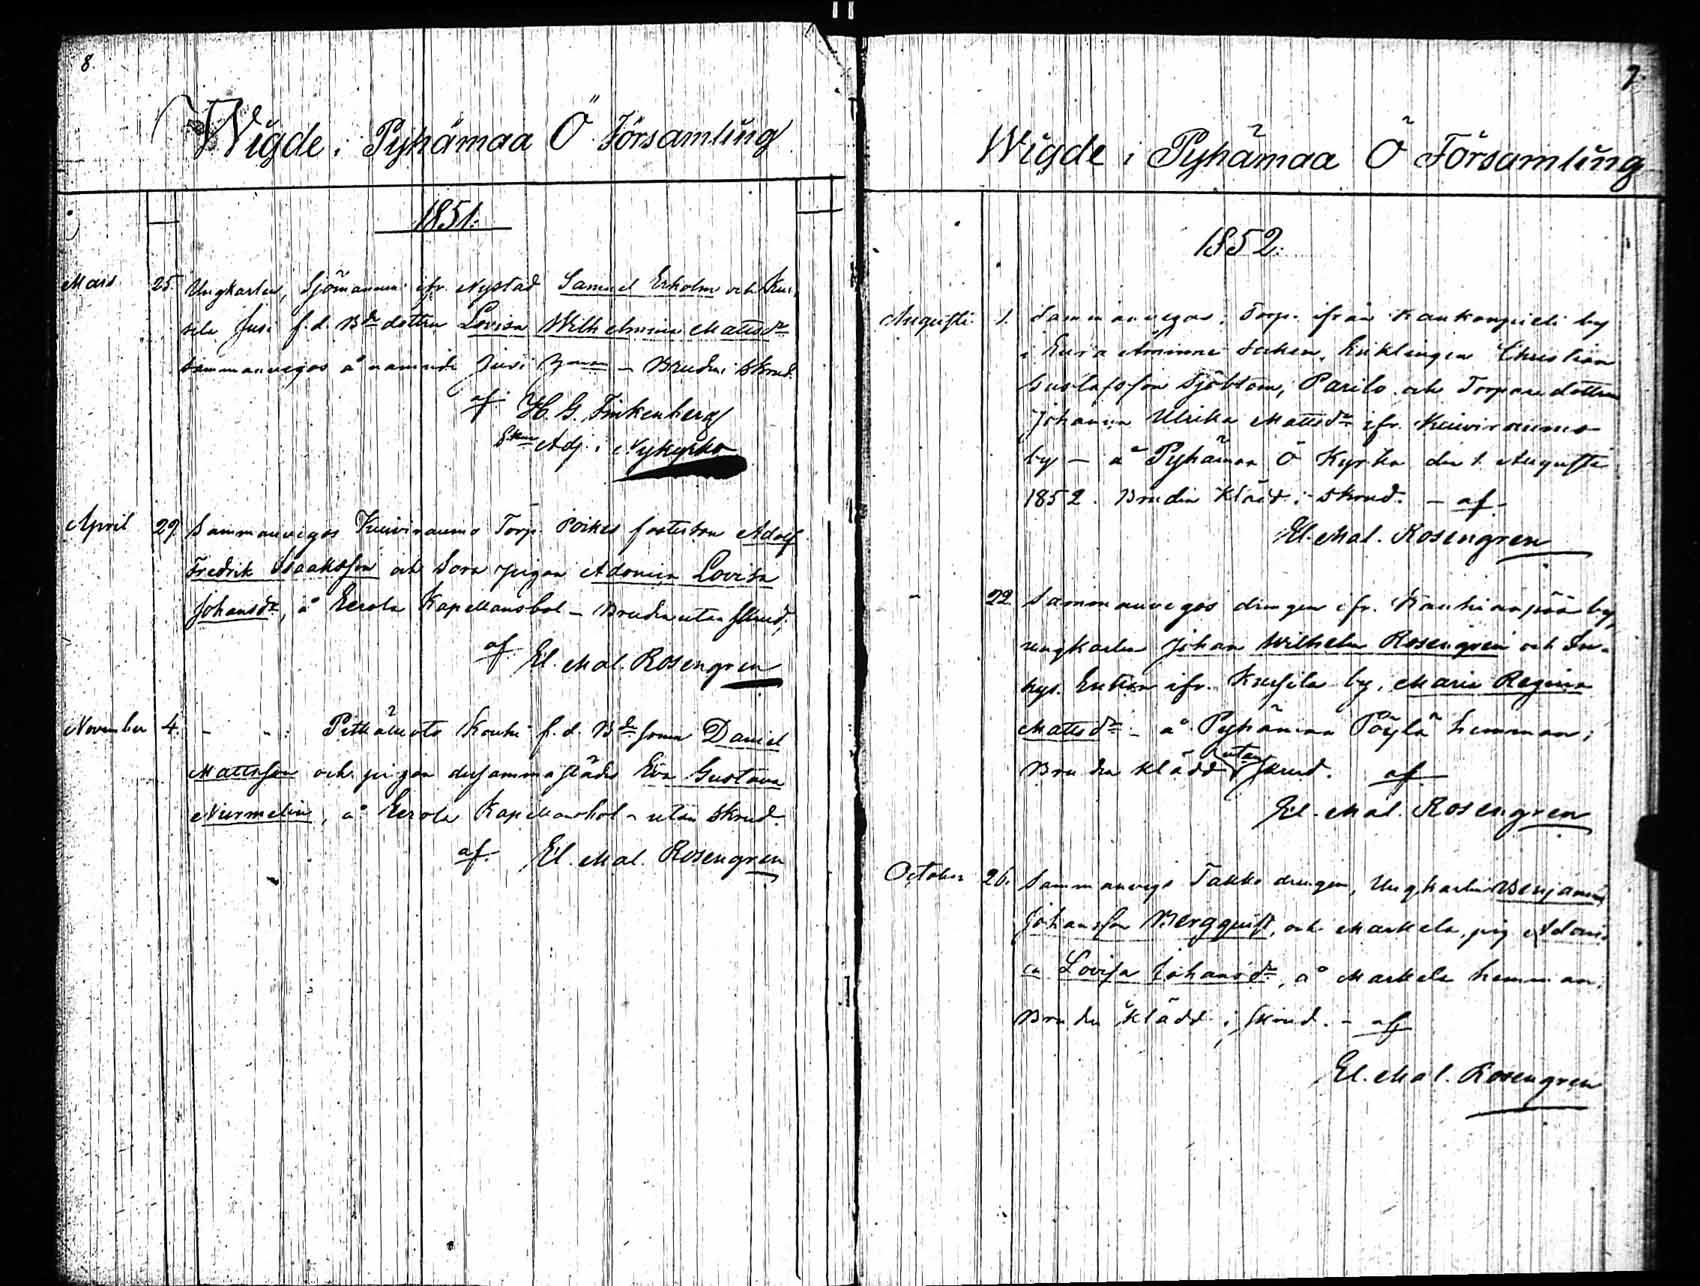 8.
Wigde i Pyhämaa Ö Församling
1851.
Mars 25. Ungkarlen, Sjömannen ifr. Nystad Samuel Ekholm och Kur-
sila Jusi f.d. Bde dottren Lovisa Wilhelmina Mattsdr
sammanvigos å nämnde Jusi – Bruden i skrud.
af H. G. Finkenberg
Adj. i Nykyrko
April 29. Sammanvigos Kuiviraumo Torp. Poikes fosterson Adolf
Fredrik Isaaksson och Sora pigan Adamina Lovisa
Johansdr, å Eerola Kapellansbol – Bruden utan skrud,
af El. Mal. Rosengren
November 4. - - : Pitkäluoto Kouki f.d. Bde sonen Daniel
Mattsson och pigan dersammastädes Eva Gustava
Nurmelin, å Eerola Kapellansbol – utan skrud.
af El. Mal. Rosengren
9.
Wigde i Pyhämaa Ö Församling
1852.
Augusti 1. Sammanvigos: Torp. ifrån Kaukanpieli by
i Eura Socken, Enklingen Christian
Gustafsson Sjöblom, Parilo och Torparedottren
Johanna Ulrika Mattsdr ifr. Kuiviraumo
by – å Pyhämaa Ö Kyrka den 1. Augusti
1852. Bruden klädd i skrud. – af
El. Mal. Rosengren
- 22. Sammanvigos drengen ifr. Kauhianpää by,
ungkarlen Johan Wilhelm Rosengren och In-
hys. Enkan ifr. Kursila by, Maria Regina
Mattsdr – å Pyhämaa Pöylä hemman;
Bruden klädd utan skrud. af
El. Mal. Rosengren
October 26. Sammanvigs Takko drengen, Ungkarlen Benjamin
Johansson Bergquist, och Markela pig. Adami-
na Lovisa Johansdr, å Markela hemman.
Bruden klädd i skrud. – af
El. Mal. Rosengren